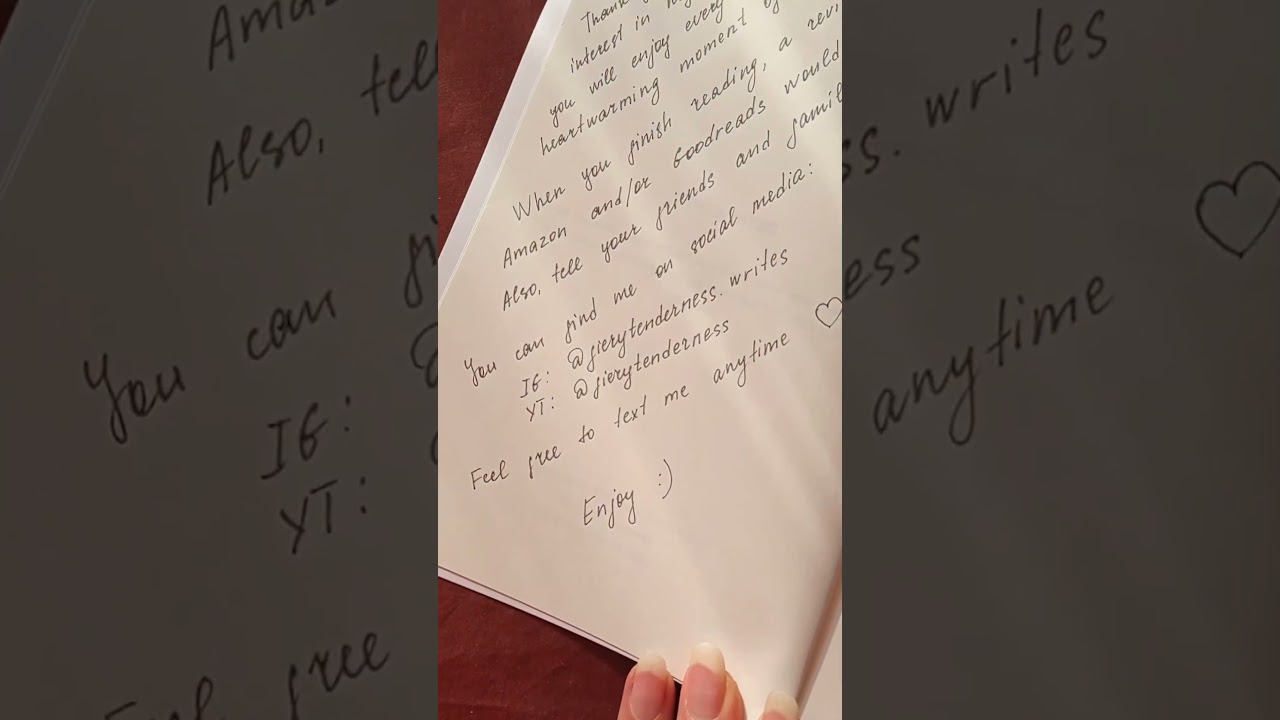 Thank
interest in
you will enjoy every
heartwarming moment of
When you finish reading, a
Amazon and/or Goodreads would
Also, tell your friends and
You can find me on social media:
IG: @fierytenderness.writes
YT: @fierytenderness
Feel free to text me anytime ♡
Enjoy :)